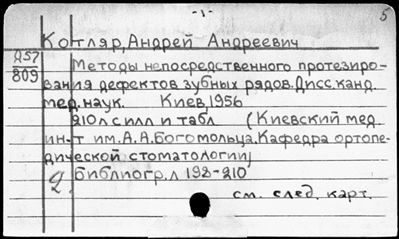 -1-
5
Котляр, Андрей Андреевич
Д57
809
Методы непосредственного протезиро-
вания дефектов зубных рядов. Дисс. канд.
мед. наук. Киев, 1956
210 л с илл и табл (Киевский мед.
ин-т им. А. А. Богомольца. Кафедра ортопе-
дической стоматологии)
Библиогр. л 198-210
2.
см. след. карт.